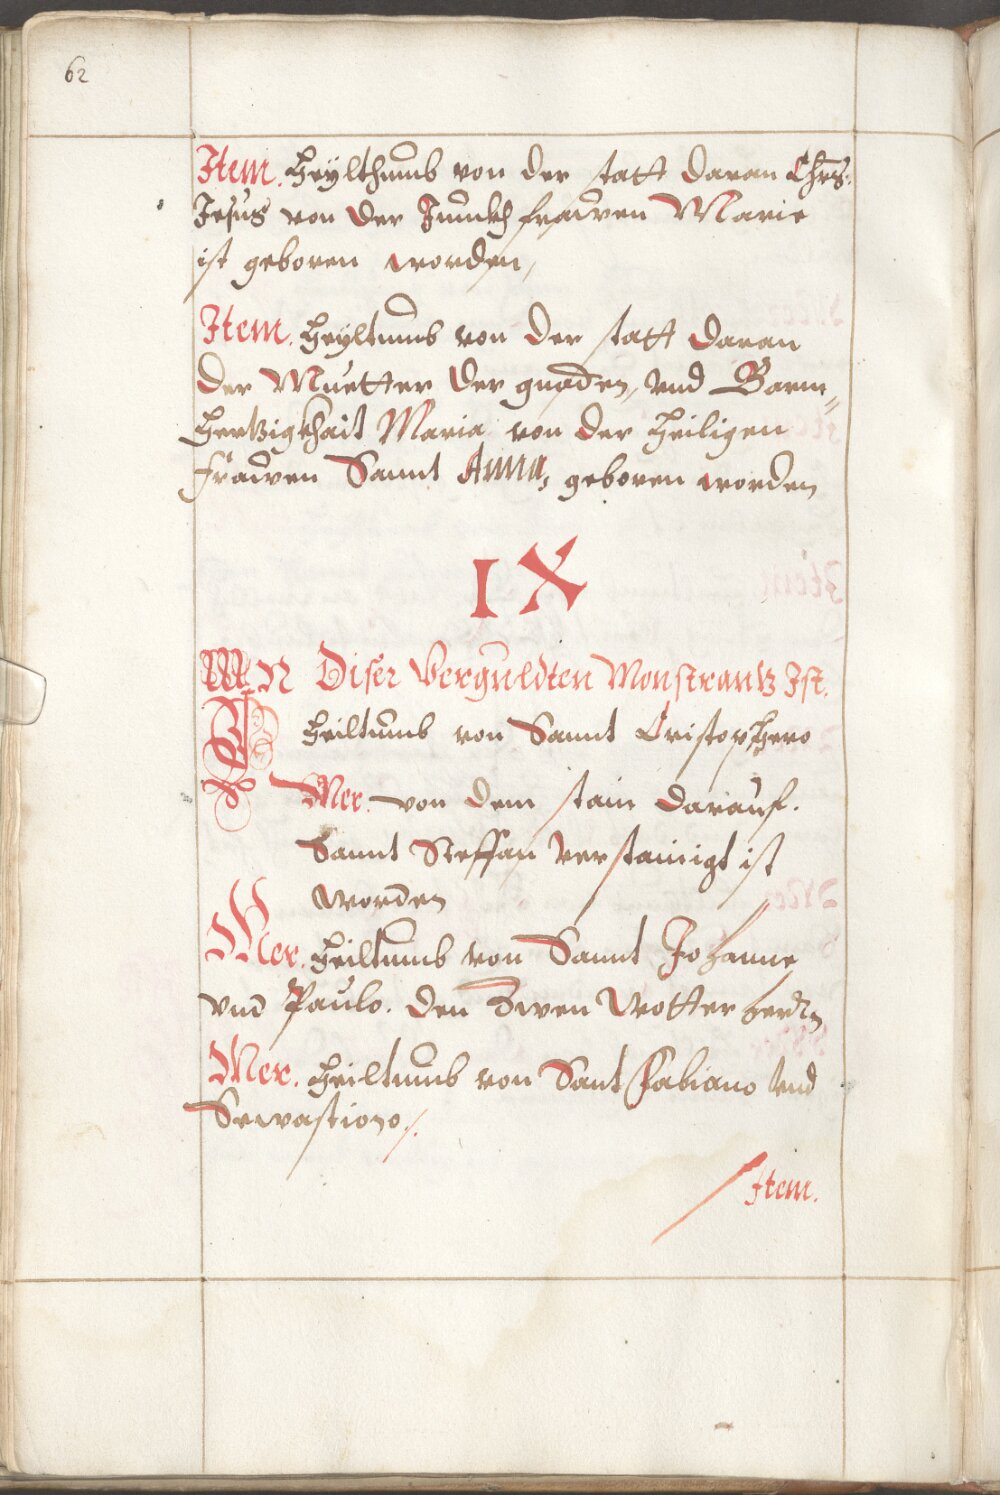 62
Item. Heylthumb von der statt daran Chrs:
Jesus von der Junckh frawen Marie
ist geboren worden,
Item. Heyltumb von der statt daran
der Muetter der gnaden, vnd Barm„
hertzigkhait Maria von der heiligen
frawen Sannt Anna, geboren worden
IX
IN Diser Verguldten Monstrantz Ist.
Heiltumb von Sannt Cristophero
Mer. von dem stain darauf.
Sannt Steffan verstainigt ist
worden
Mer. Heiltumb von Sannt Johanne
vnd Paulo. den Zwen Wetter herrn
Mer. Heiltumb von Sant Fabiano vnd
Sewastiono ./.
Item.